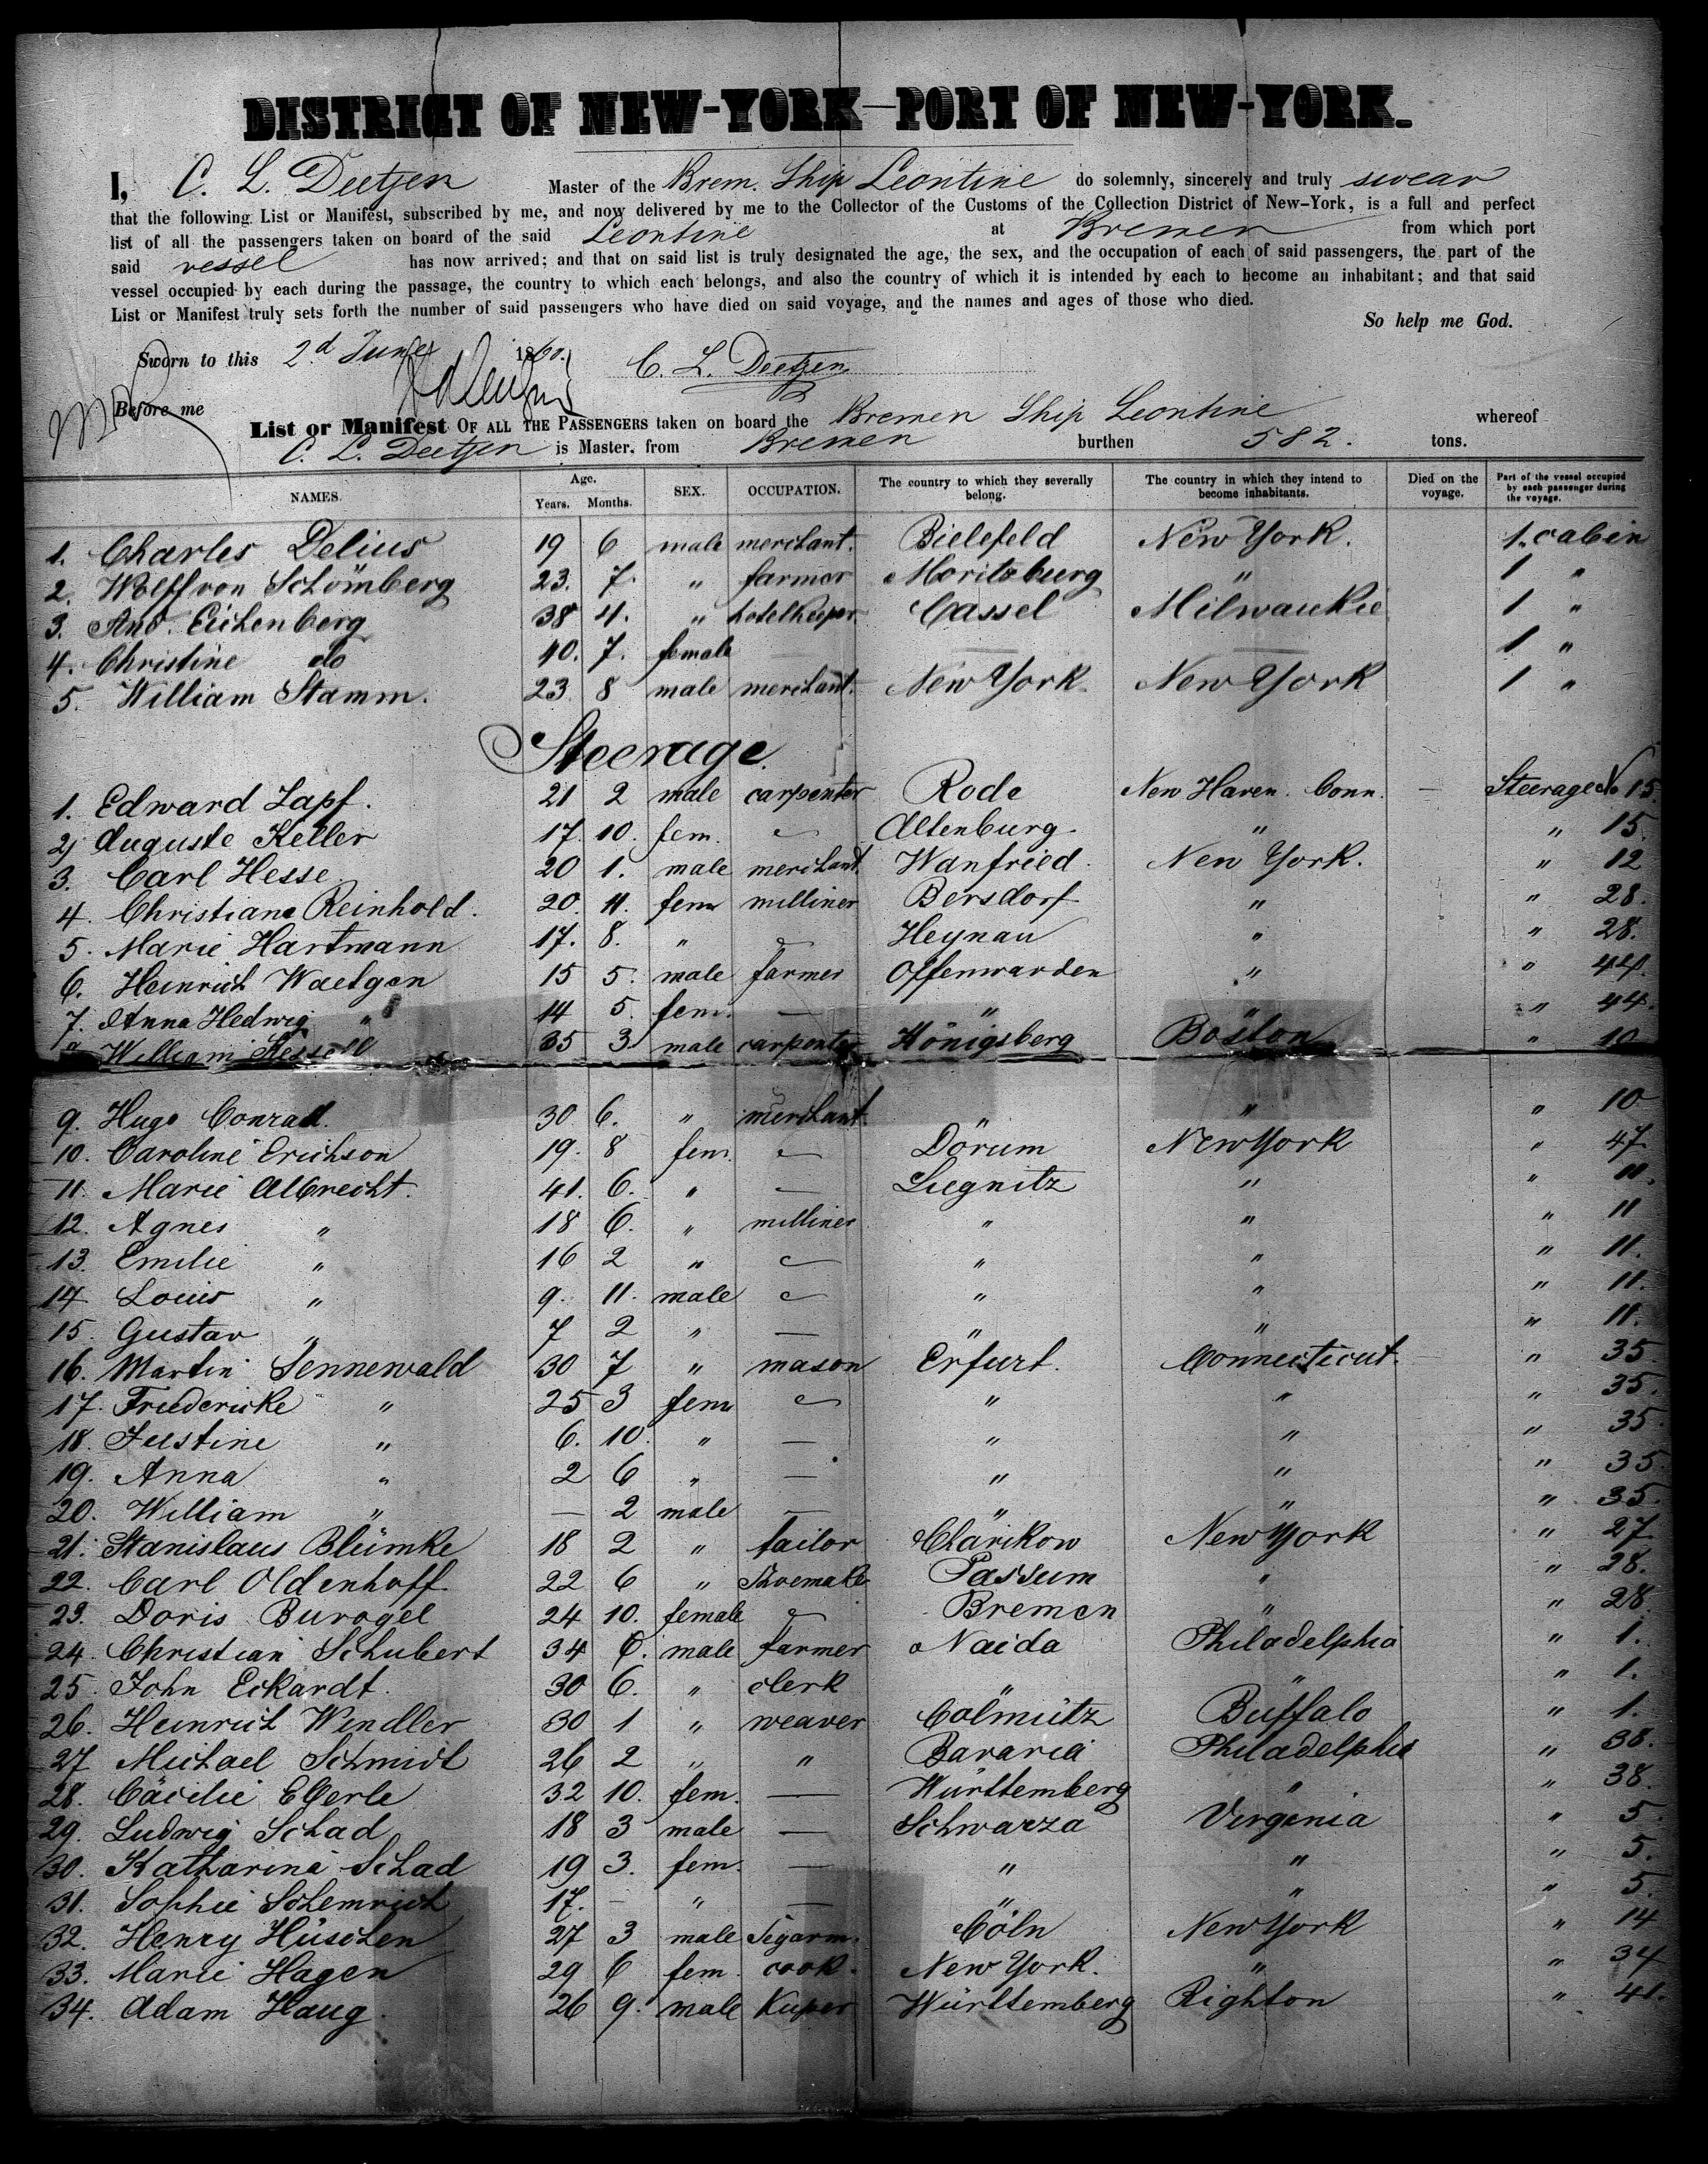 DISTRICT OF NEW-YORK—PORT OF NEW-YORK.
I, C. L. Deetjen Master of the Brem. Ship Leontine do solemnly, sincerely and truly swear
that the following List or Manifest, subscribed by me, and now delivered by me to the Collector of the Customs of the Collection District of New-York, is a full and perfect
list of all the passengers taken on board of the said Leontine at Bremen from which port
said vessel has now arrived; and that on said list is truly designated the age, the sex, and the occupation of each of said passengers, the part of the
vessel occupied by each during the passage, the country to which each belongs, and also the country of which it is intended by each to become an inhabitant; and that said
List or Manifest truly sets forth the number of said passengers who have died on said voyage, and the names and ages of those who died.
So help me God.
Sworn to this 2d June 1860. C. L. Deetjen
Before me
List or Manifest OF ALL THE PASSENGERS taken on board the Bremen Ship Leontine whereof
C. L. Deetjen is Master, from Bremen burthen 582. tons.
NAMES. Age. Years. Months. SEX. OCCUPATION. The country to which they severally belong. The country in which they intend to become inhabitants. Died on the voyage. Part of the vessel occupied by each passenger during the voyage.
1. Charles Delius 19 6 male merchant. Bielefeld New York. 1. cabin
2. Wolff von Schömberg 23. 7. " farmer Moritzburg " 1 "
3. And. Eichenberg 38 4. " hotelkeper. Cassel Milwaukie 1 "
4. Christine do 40. 7. female — — 1 "
5. William Stamm. 23 8 male merchant. New York. New York 1 "
Steerage.
1. Edward Zapf. 21 2 male carpenter Rode New Haven. Conn. — Steerage No 15.
2, Auguste Keller 17. 10. fem. — Altenburg. " " 15.
3. Carl Hesse. 20 1. male merchant Wanfried. New York. " 12
4. Christiane Reinhold. 20. 11. fem milliner Bersdorf " " 28.
5. Marie Hartmann 17. 8. " — Heynau " " 28.
6. Heinrich Waetgen 15 5. male farmer Offenwarden " " 44.
7. Anna Hedwig " 14 5. fem. — " " " 44.
William 35 3. male carpenter Königsberg Boston " 10
9. Hugo Conrad. 30 6. " merchant. " " " 10
10. Caroline Erichson 19. 8 fem. — Dorum New York " 47
11. Marie Albrecht. 41. 6. " — Liegnitz " " 11.
12. Agnes " 18 6. " milliner " " " 11
13. Emilie " 16 2 " — " " " 11.
14 Louis " 9. 11. male — " " " 11.
15. Gustav " 7 2 " — " " " 11.
16. Martin Sennewald 30 7 " mason Erfurt. Connecticut. " 35
17. Friedericke " 25 3 fem — " " " 35.
18. Justine " 6. 10. " — " " " 35
19. Anna " 2 6 " — " " " 35.
20. William " — 2 male — " " " 35.
21. Stanislaus Blümke 18 2 " tailor Charikow New York " 27
22. Carl Oldenhoff 22 6 " Shoemake Passum " " 28.
23. Doris Buvogel 24 10. female — Bremen " " 28
24. Christian Schubert 34 6. male farmer Naida Philadelphia " 1.
25. John Eckardt. 30 6. " clerk " " " 1.
26. Heinrich Wendler 30 1 " weaver Colmütz Buffalo " 1.
27 Michael Schmidt 26 2 " " Bavaria Philadelphia " 38.
28. Cäcilie Eberle 32 10. fem. — Württemberg " " 38.
29. Ludwig Schad 18 3 male — Schwarza Virginia " 5
30. Katharina Schad 19 3. fem. — " " " 5.
31. Sophie Schemrich 17. — " — " " " 5.
32. Henry Hüschen 27 3 male Segarm. Cöln New York " 14
33. Marie Hagen 29 6 fem. cook. New York. " " 34
34. Adam Haug. 26 9. male Kuper Württemberg Righton " 41.